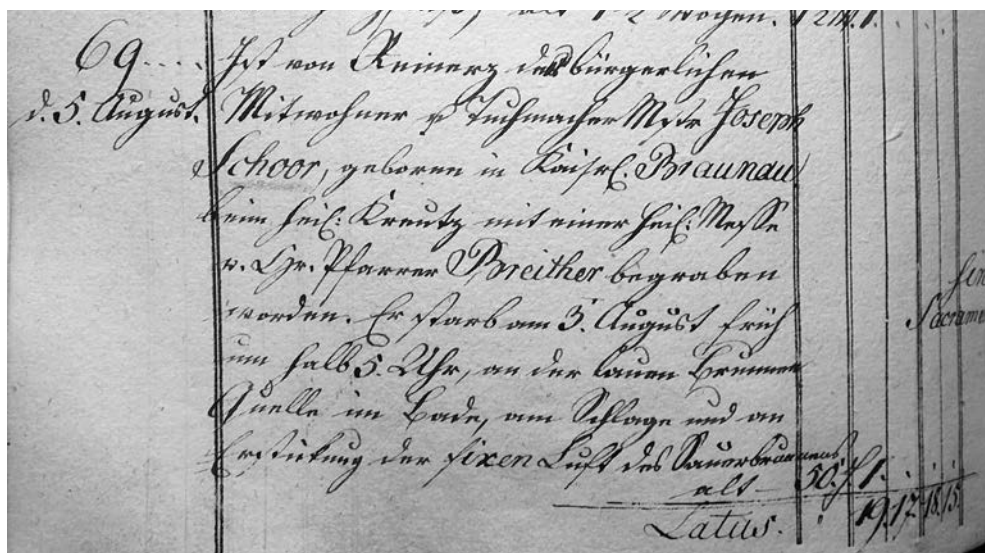 alt 12 Wochen. 12 W. 1.
69.... Ist von Reinerz der bürgerlichen
d. 5. August. Mitwohner u Tuchmacher Mstr Joseph
Schoor, geboren in Kaiserl. Braunau
beim heil: Kreutz mit einer heil: Messe
v. Hr. Pfarrer Breither begraben
worden. Er starb am 3. August früh
um halb 5. Uhr, an der lauen Brunnen
Quelle im Bade, am Schlage und an
Erstickung der fixen Luft des Sauerbrunnens
alt 50. J 1.
Latus. 19. 17. 18. 15.
Sacrame